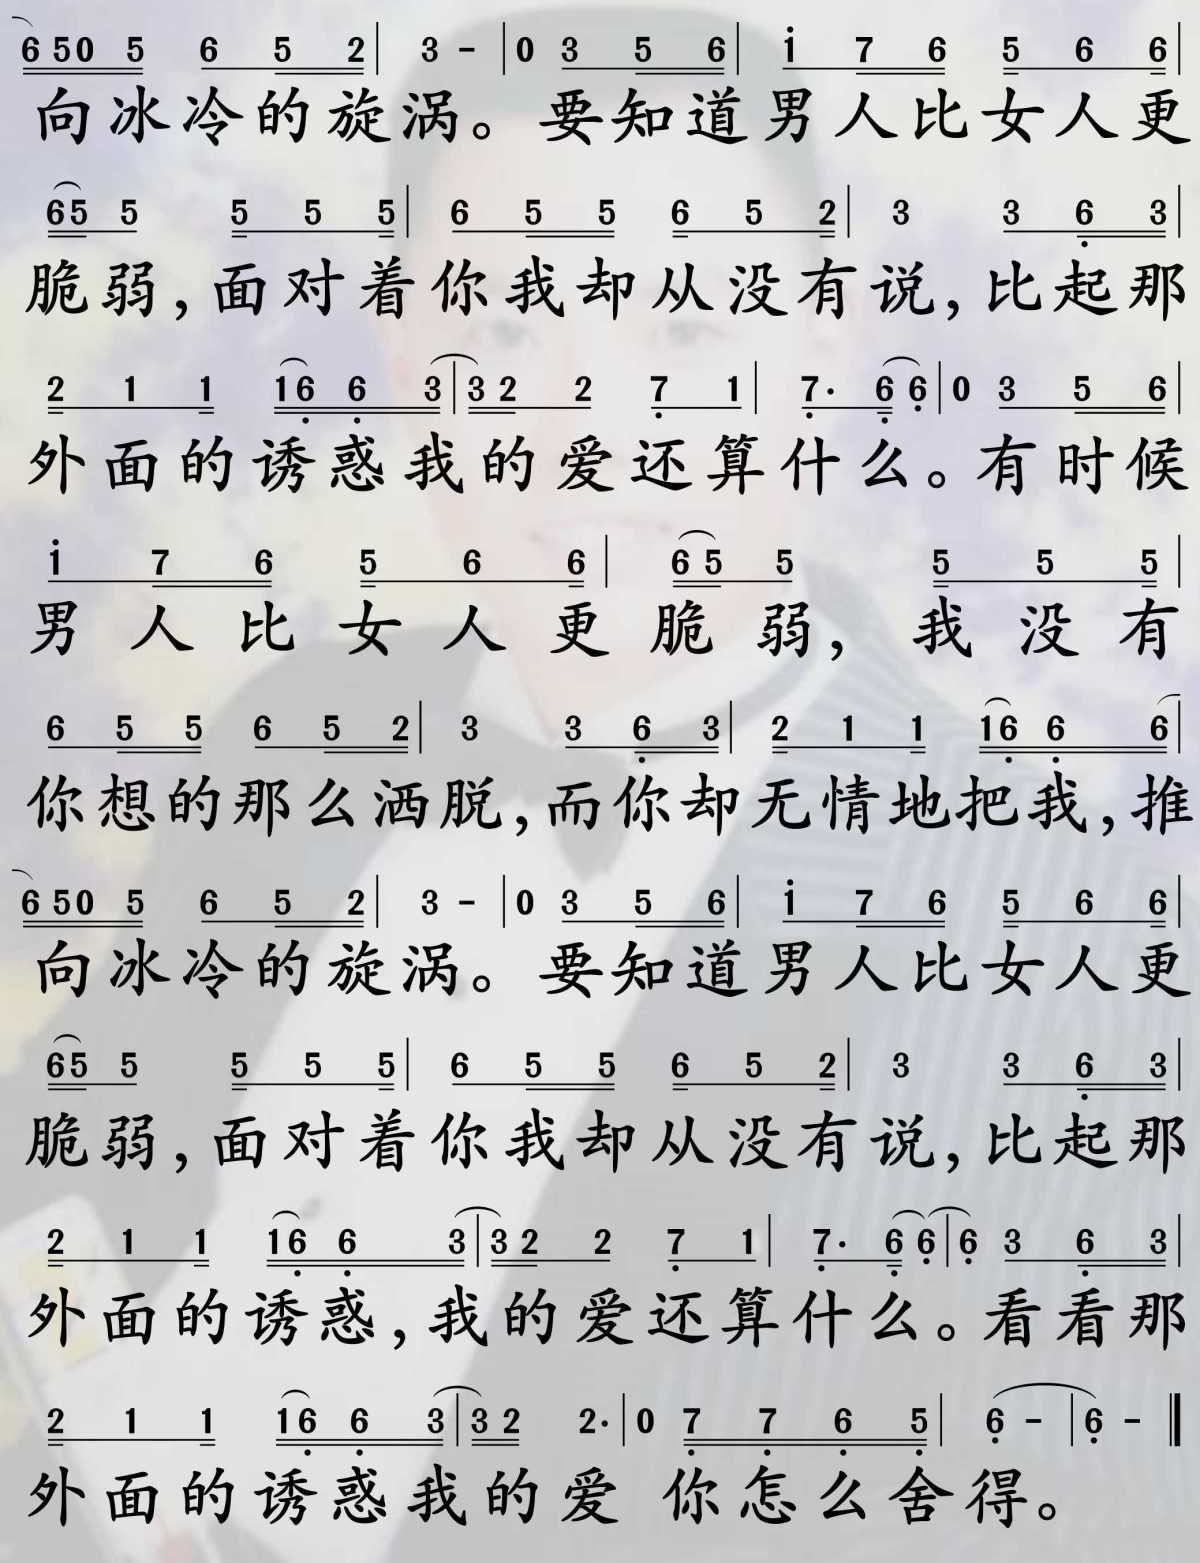 6 5 0 5 6 5 2 | 3 - | 0 3 5 6 | i 7 6 5 6 6 |
向冰冷的旋涡。要知道男人比女人更
6 5 5 5 5 5 | 6 5 5 6 5 2 | 3 3 6 3 |
脆弱,面对着你我却从没有说,比起那
2 1 1 1 6 6 3 | 3 2 2 7 1 | 7· 6 6 | 0 3 5 6 |
外面的诱惑我的爱还算什么。有时候
i 7 6 5 6 6 | 6 5 5 5 5 5 |
男人比女人更脆弱,我没有
6 5 5 6 5 2 | 3 3 6 3 | 2 1 1 1 6 6 6 |
你想的那么洒脱,而你却无情地把我,推
6 5 0 5 6 5 2 | 3 - | 0 3 5 6 | i 7 6 5 6 6 |
向冰冷的旋涡。要知道男人比女人更
6 5 5 5 5 5 | 6 5 5 6 5 2 | 3 3 6 3 |
脆弱,面对着你我却从没有说,比起那
2 1 1 1 6 6 3 | 3 2 2 7 1 | 7· 6 6 | 6 3 6 3 |
外面的诱惑,我的爱还算什么。看看那
2 1 1 1 6 6 3 | 3 2 2· | 0 7 7 6 5 | 6 - | 6 - ‖
外面的诱惑我的爱 你怎么舍得。